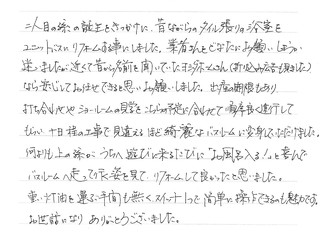 二人目の孫の誕生をきっかけに、昔ながらのタイル張りの浴室を
ユニットバスにリフォームする事にしました。業者さんをどなたにお願いしようか
迷いましたが近くて昔から名前を聞いていた さん(折り込み広告も見ました)
なら安心してお任せできると思いお願いしました。出産の期限もあり
打ち合わせやショールームの見学をこちらの予定に合わせて手際良く進行して
もらい十日程の工事で見違えるほど綺麗なバスルームに変身していただけました。
何よりも上の孫がうちへ遊びに来るたびに「お風呂入る!」と喜んで
バスルームへ走って行く姿を見て、リフォームして良かったと思いました。
重い灯油を運ぶ手間も無く、スイッチ1つで簡単に操作できるのも魅力です。
お世話になりありがとうございました。